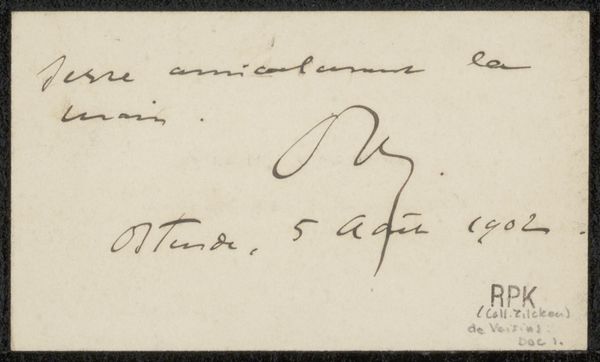 serre amicalement la
main.
Ostende, 5 Août 1902.
RPK
(Coll. Zilcken)
de Voisins:
Doc 1.